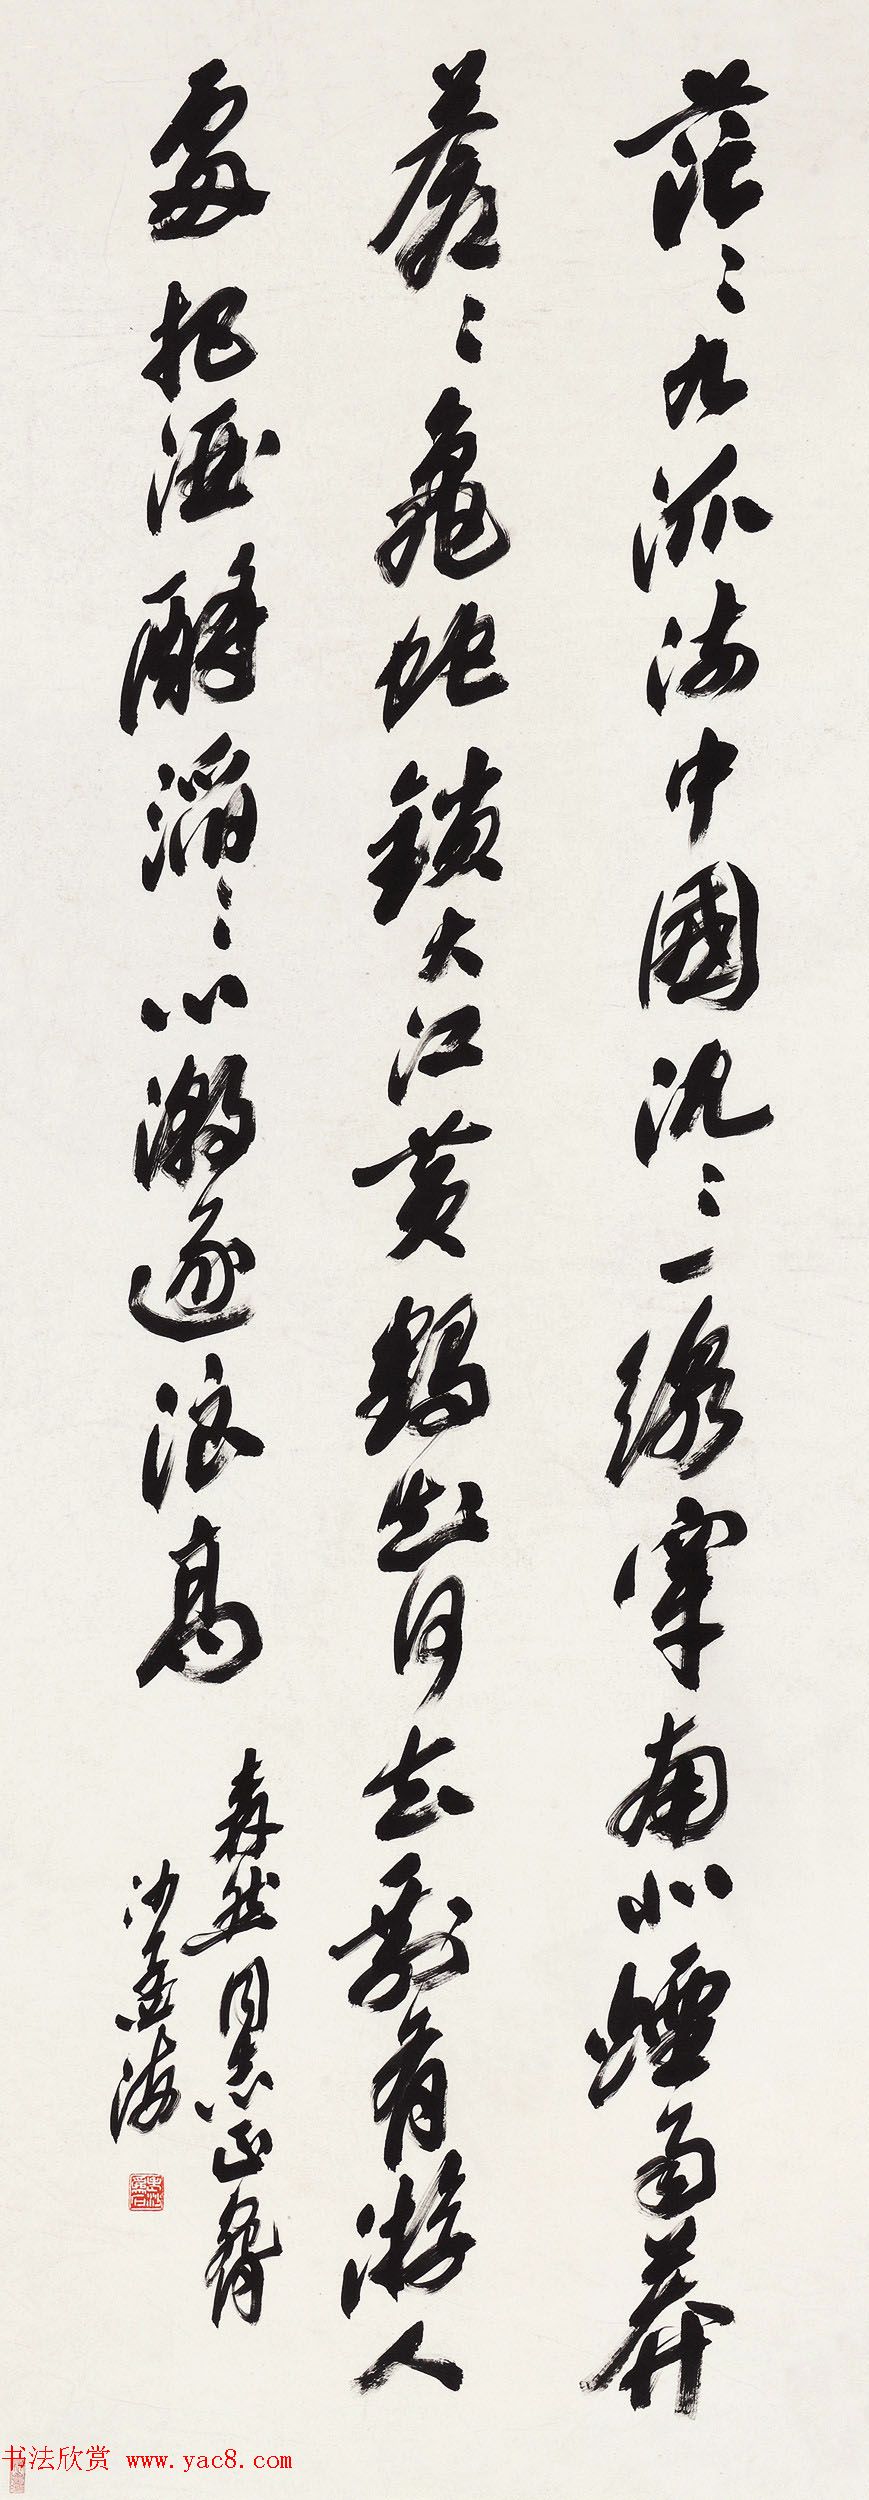 茫〻九派流中國沈〻一線穿南北煙雨莽
蒼〻龜蛇鎖大江黃鶴知何去剩有游人
處把酒酹滔〻心潮逐浪高
森然同志正
沙孟海
书法欣赏 www.yac8.com